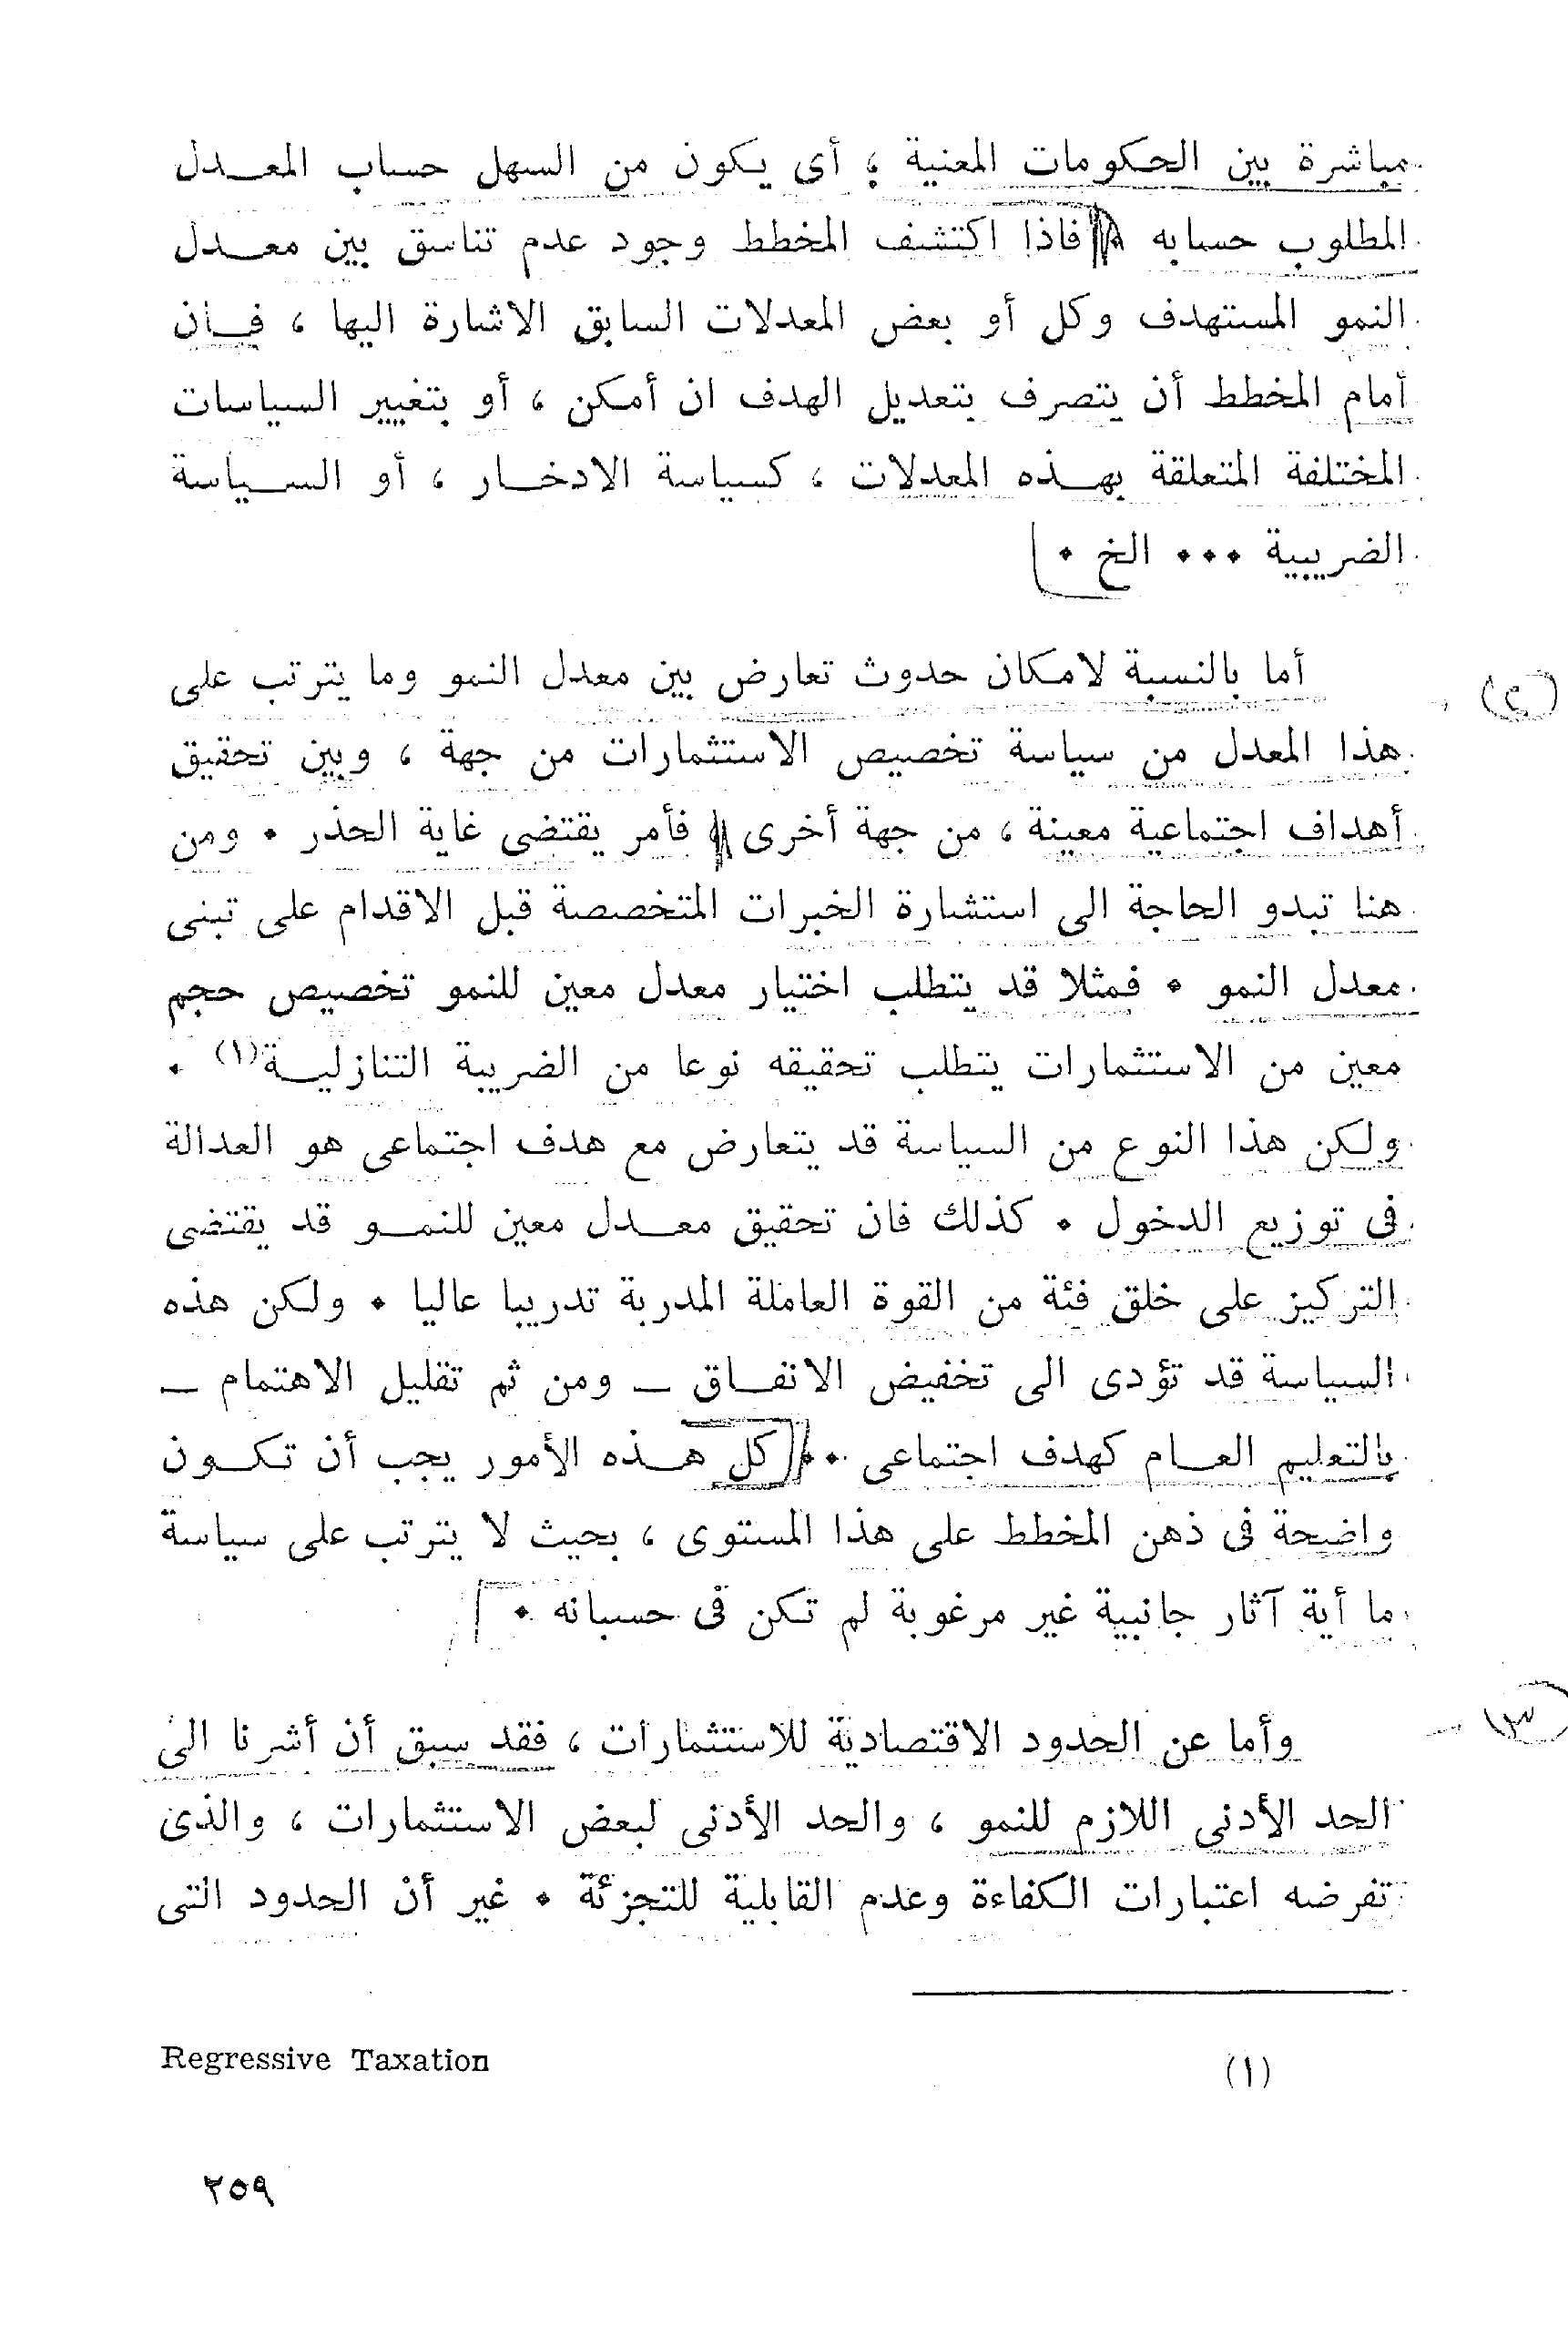 مباشرة بين الحكومات المعنية ؛ أى يكون من السهل حساب المعــدل
المطلوب حسابه • فاذا اكتشف المخطط وجود عدم تناسق بين معــدل
النمو المستهدف وكل أو بعض المعدلات السابق الاشارة اليها ، فــان
أمام المخطط أن يتصرف بتعديل الهدف ان أمكن ، أو بتغيير السياسات
المختلفة المتعلقة بهــذه المعدلات ، كسياسة الادخــار ، أو الســياسة
الضريبية ••• الخ •
(٢)
أما بالنسبة لامكان حدوث تعارض بين معدل النمو وما يترتب على
هذا المعدل من سياسة تخصيص الاستثمارات من جهة ، وبين تحقيق
أهداف اجتماعية معينة ، من جهة أخرى فأمر يقتضى غاية الحذر • ومن
هنا تبدو الحاجة الى استشارة الخبرات المتخصصة قبل الاقدام على تبنى
معدل النمو • فمثلا قد يتطلب اختيار معدل معين للنمو تخصيص حجم
معين من الاستثمارات يتطلب تحقيقه نوعا من الضريبة التنازليــة(١) •
ولكن هذا النوع من السياسة قد يتعارض مع هدف اجتماعى هو العدالة
فى توزيع الدخول • كذلك فان تحقيق معــدل معين للنمــو قد يقتضى
التركيز على خلق فئة من القوة العاملة المدربة تدريبا عاليا • ولكن هذه
السياسة قد تؤدى الى تخفيض الانفــاق ــ ومن ثم تقليل الاهتمام ــ
بالتعليم العــام كهدف اجتماعى •• كل هــذه الأمور يجب أن تكــون
واضحة فى ذهن المخطط على هذا المستوى ، بحيث لا يترتب على سياسة
ما أية آثار جانبية غير مرغوبة لم تكن فى حسبانه •
(٣)
وأما عن الحدود الاقتصادية للاستثمارات ، فقد سبق أن أشرنا الى
الحد الأدنى اللازم للنمو ، والحد الأدنى لبعض الاستثمارات ، والذى
تفرضه اعتبارات الكفاءة وعدم القابلية للتجزئة • غير أن الحدود التى
(١) Regressive Taxation
٢٥٩